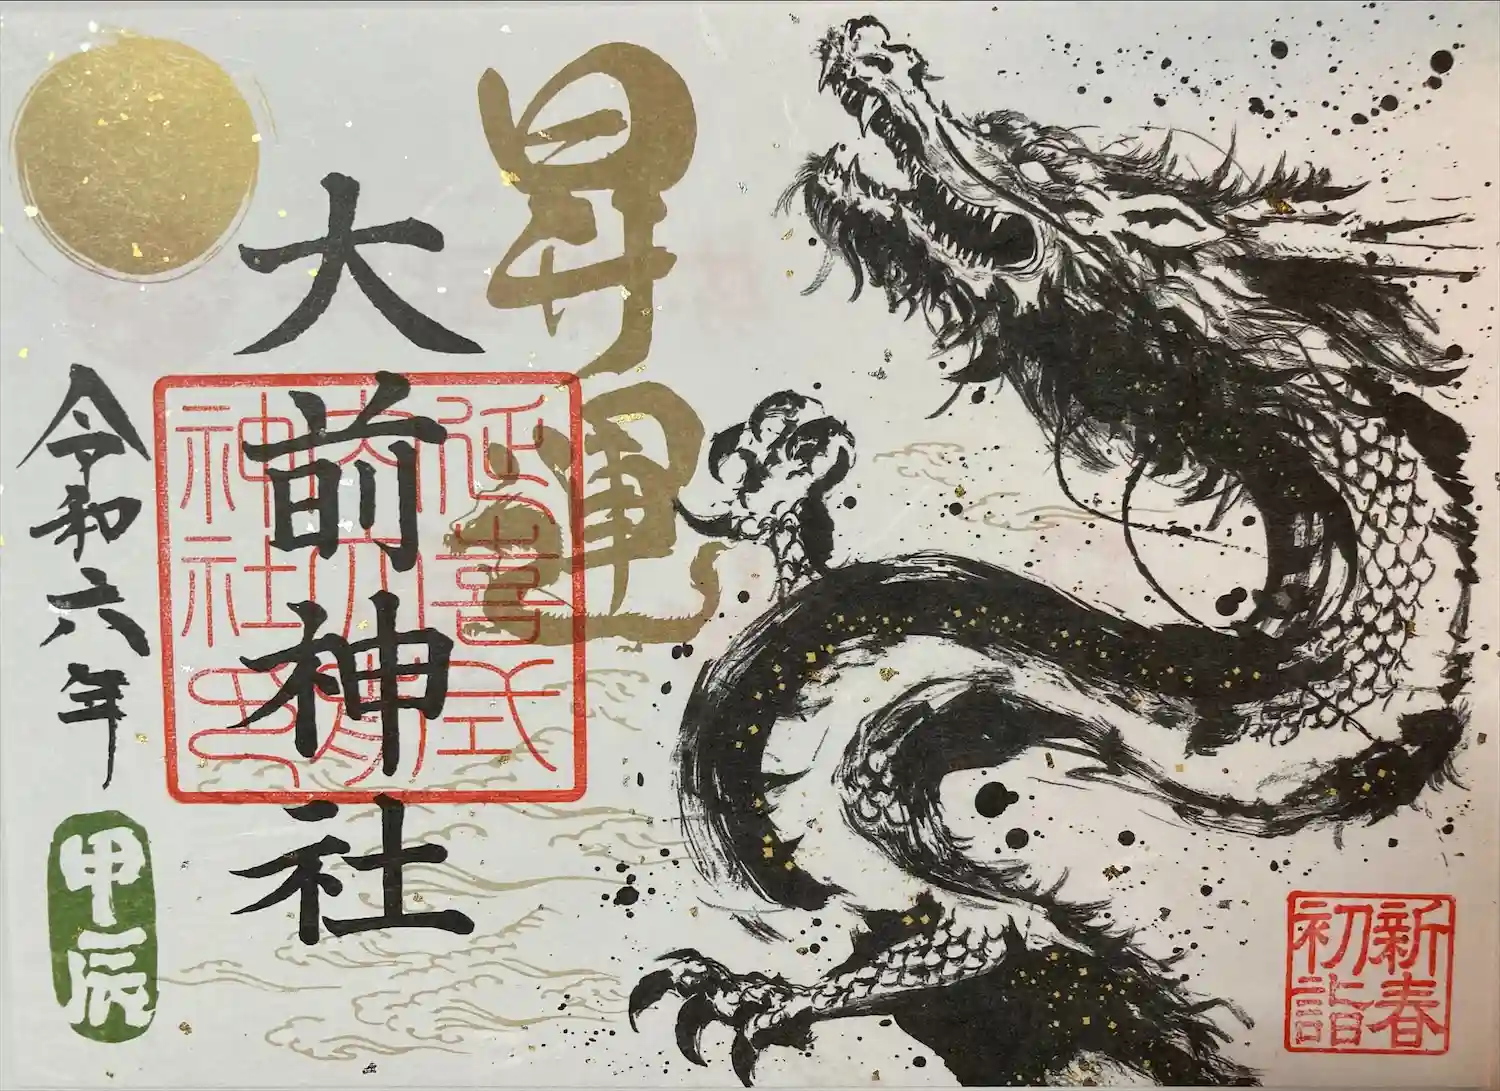 昇運
大前神社
延喜式
内大前
神社印
令和六年
甲辰
新春
初詣